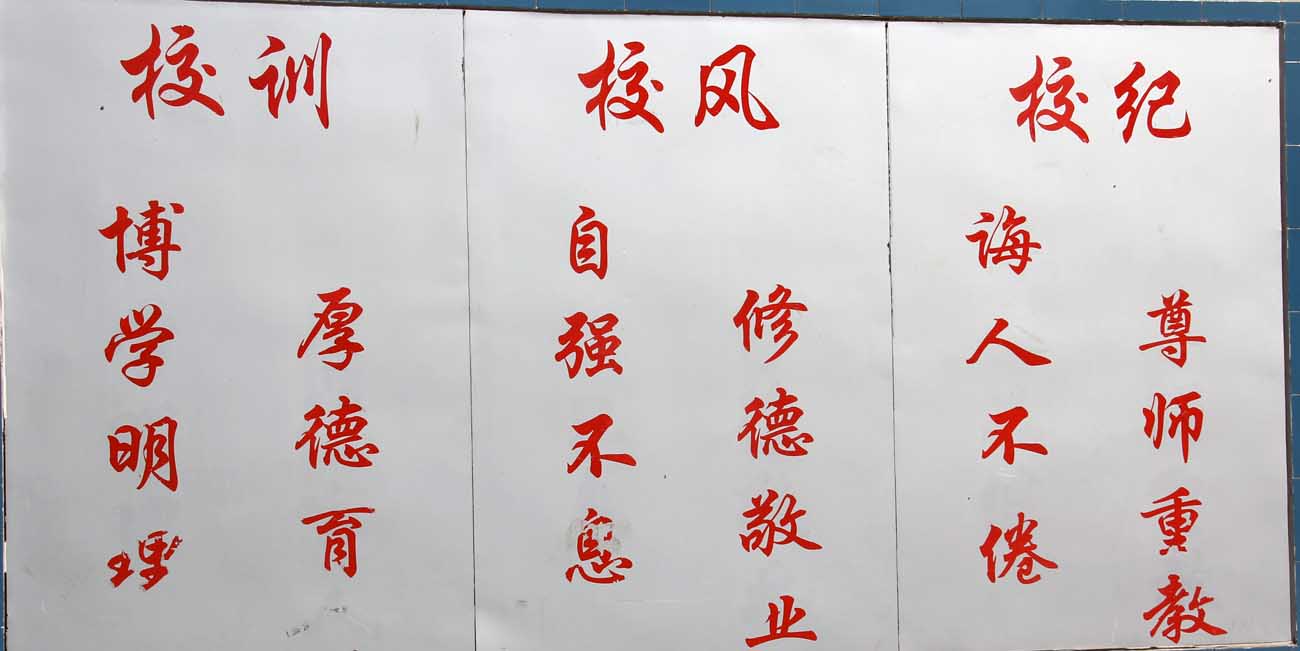 校训
博学明理
厚德育
校风
自强不息
修德敬业
校纪
诲人不倦
尊师重教